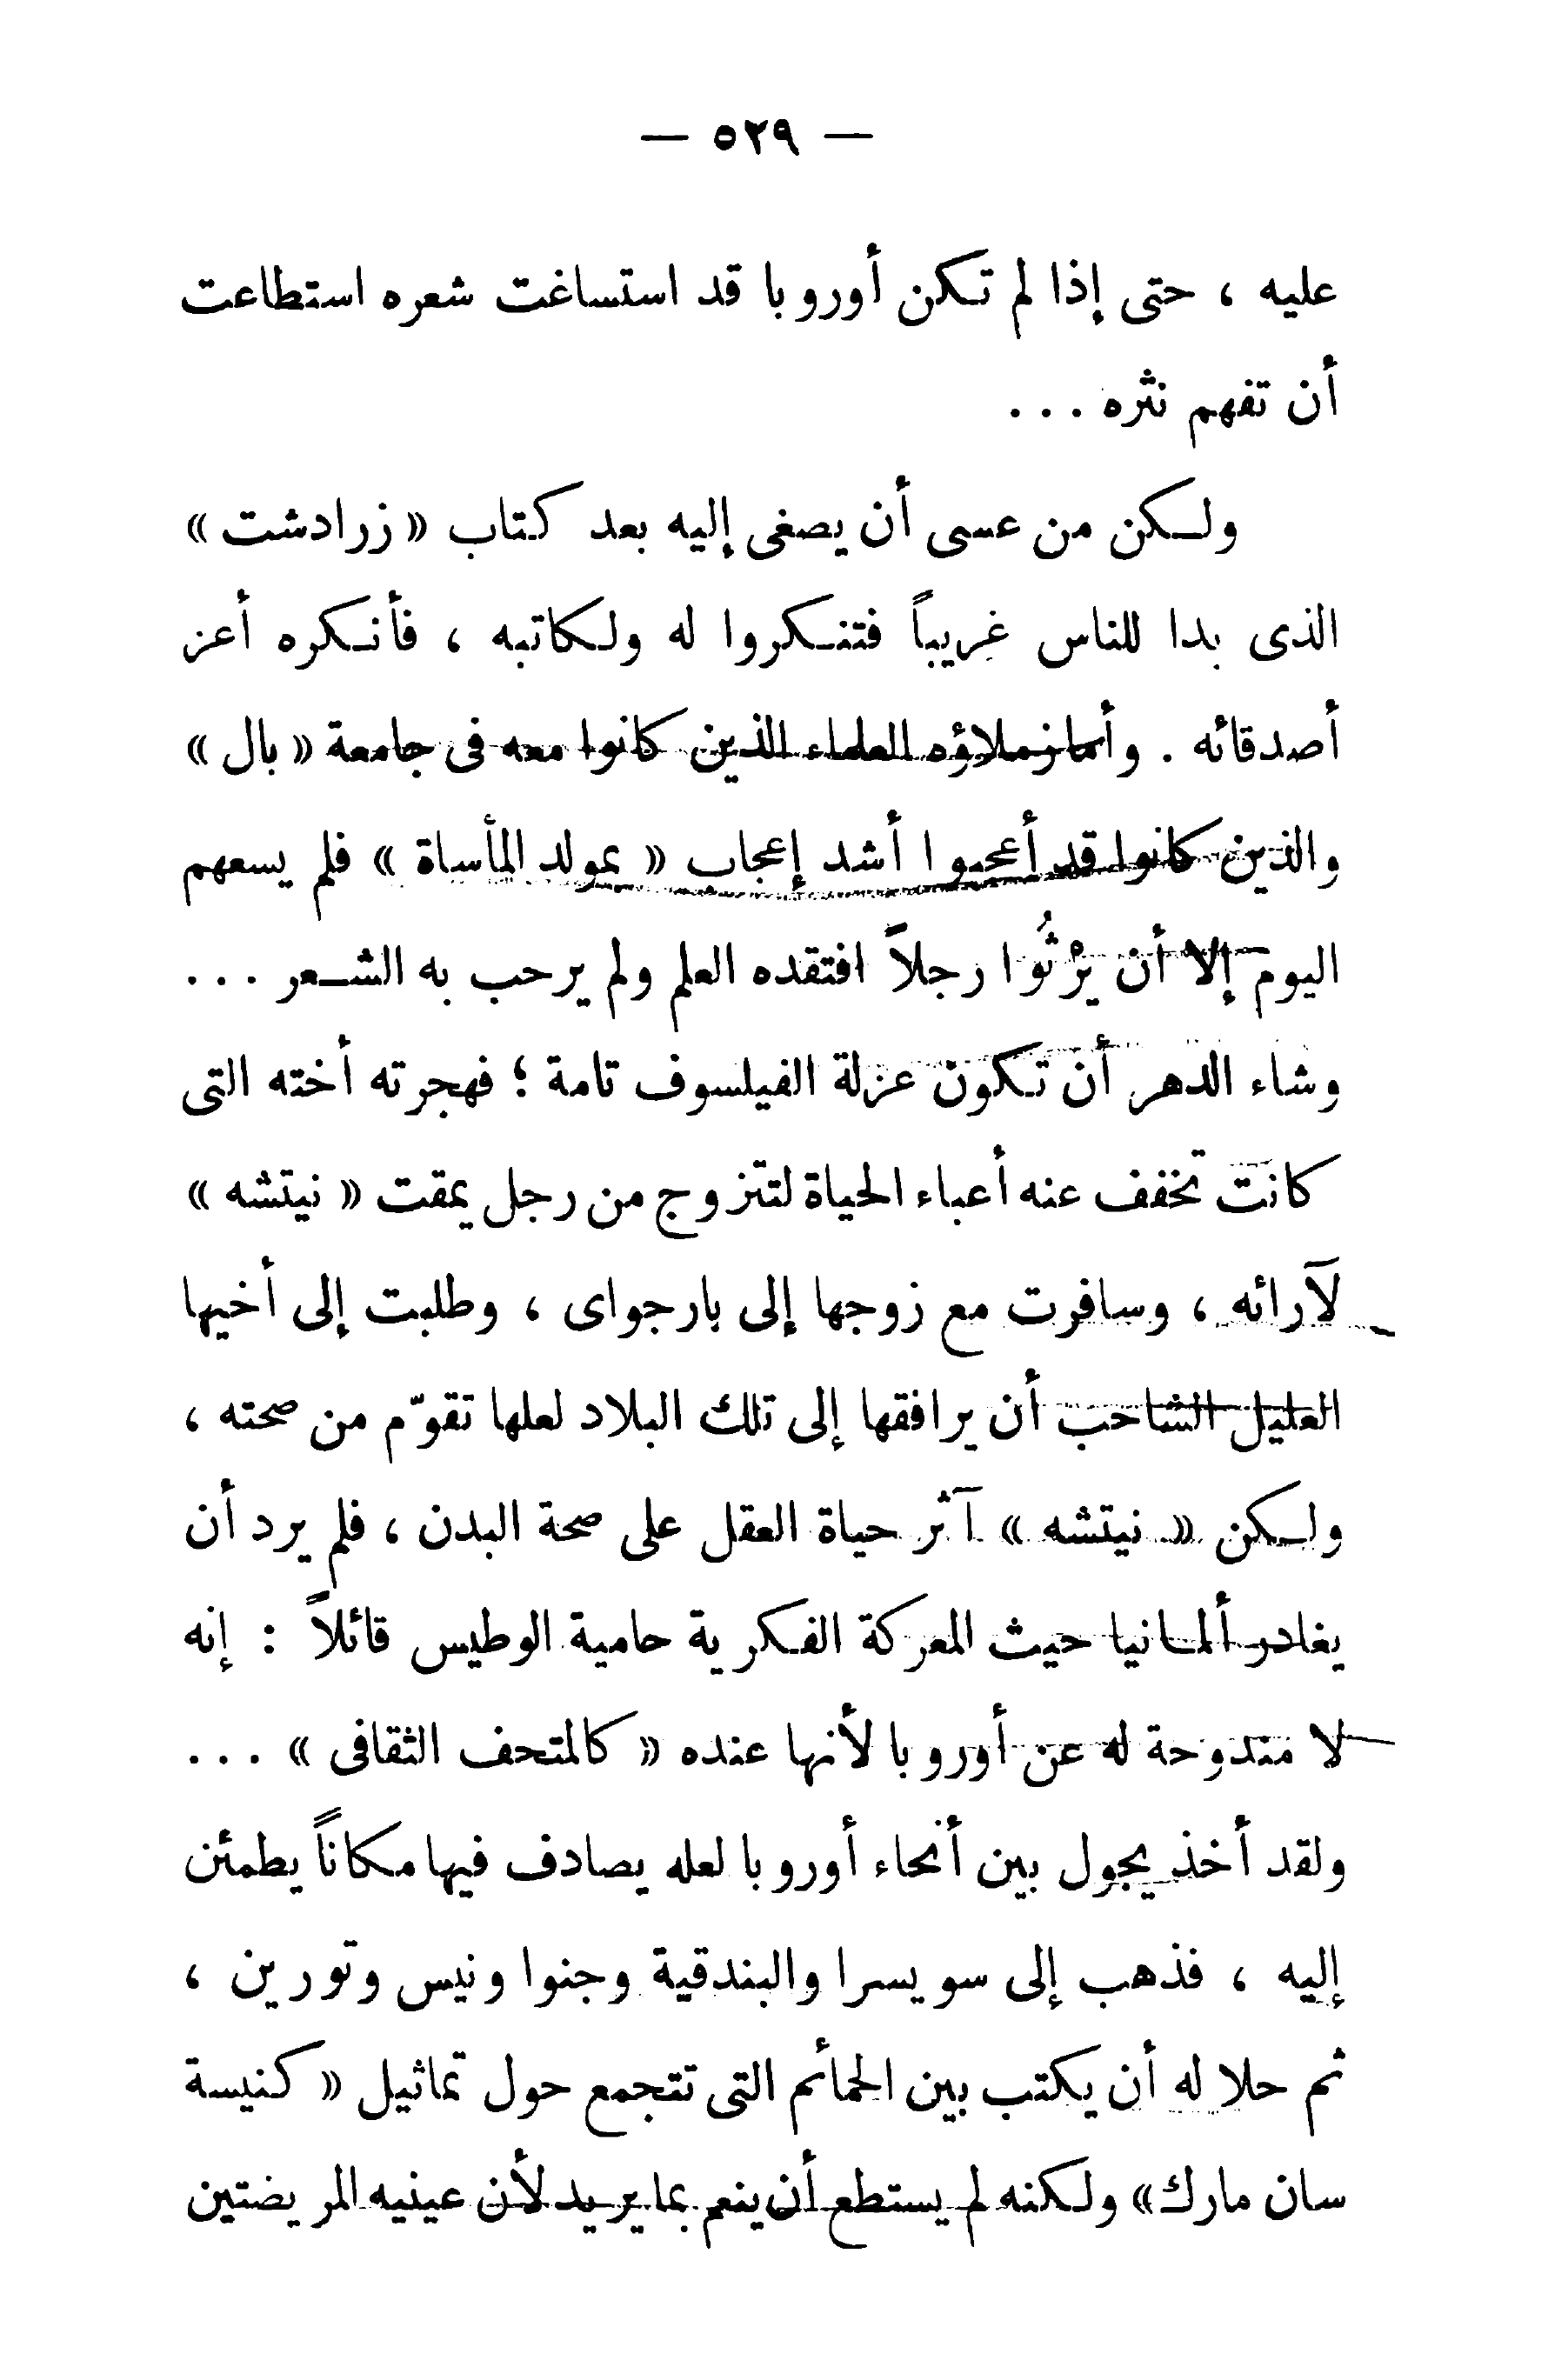 — ٥٢٩ —
عليه ، حتى إذا لم تكن أوروبا قد استساغت شعره استطاعت
أن تفهم نثره ...
ولكن من عسى أن يصغى إليه بعد كتاب « زرادشت »
الذى بدا للناس غريباً فتنكروا له ولكاتبه ، فأنكره أعز
أصدقائه . وأما زملاؤه العلماء الذين كانوا معه فى جامعة « بال »
والذين كانوا قد أعجبوا أشد إعجاب « بمولد المأساة » فلم يسعهم
اليوم إلا أن يرْثُوا رجلاً افتقده العلم ولم يرحب به الشعر ...
وشاء الدهر أن تكون عزلة الفيلسوف تامة ؛ فهجرته أخته التى
كانت تخفف عنه أعباء الحياة لتتزوج من رجل يمقت « نيتشه »
لآرائه ، وسافرت مع زوجها إلى بارجواى ، وطلبت إلى أخيها
العليل الشاحب أن يرافقها إلى تلك البلاد لعلها تقوّم من صحته ،
ولكن « نيتشه » آثر حياة العقل على صحة البدن ، فلم يرد أن
يغادر ألمانيا حيث المعركة الفكرية حامية الوطيس قائلاً : إنه
لا مندوحة له عن أوروبا لأنها عنده « كالمتحف الثقافى » ...
ولقد أخذ يجول بين أنحاء أوروبا لعله يصادف فيها مكاناً يطمئن
إليه ، فذهب إلى سويسرا والبندقية وجنوا ونيس وتورين ،
ثم حلا له أن يكتب بين الحمائم التى تتجمع حول تماثيل « كنيسة
سان مارك » ولكنه لم يستطع أن ينعم بما يريد لأن عينيه المريضتين